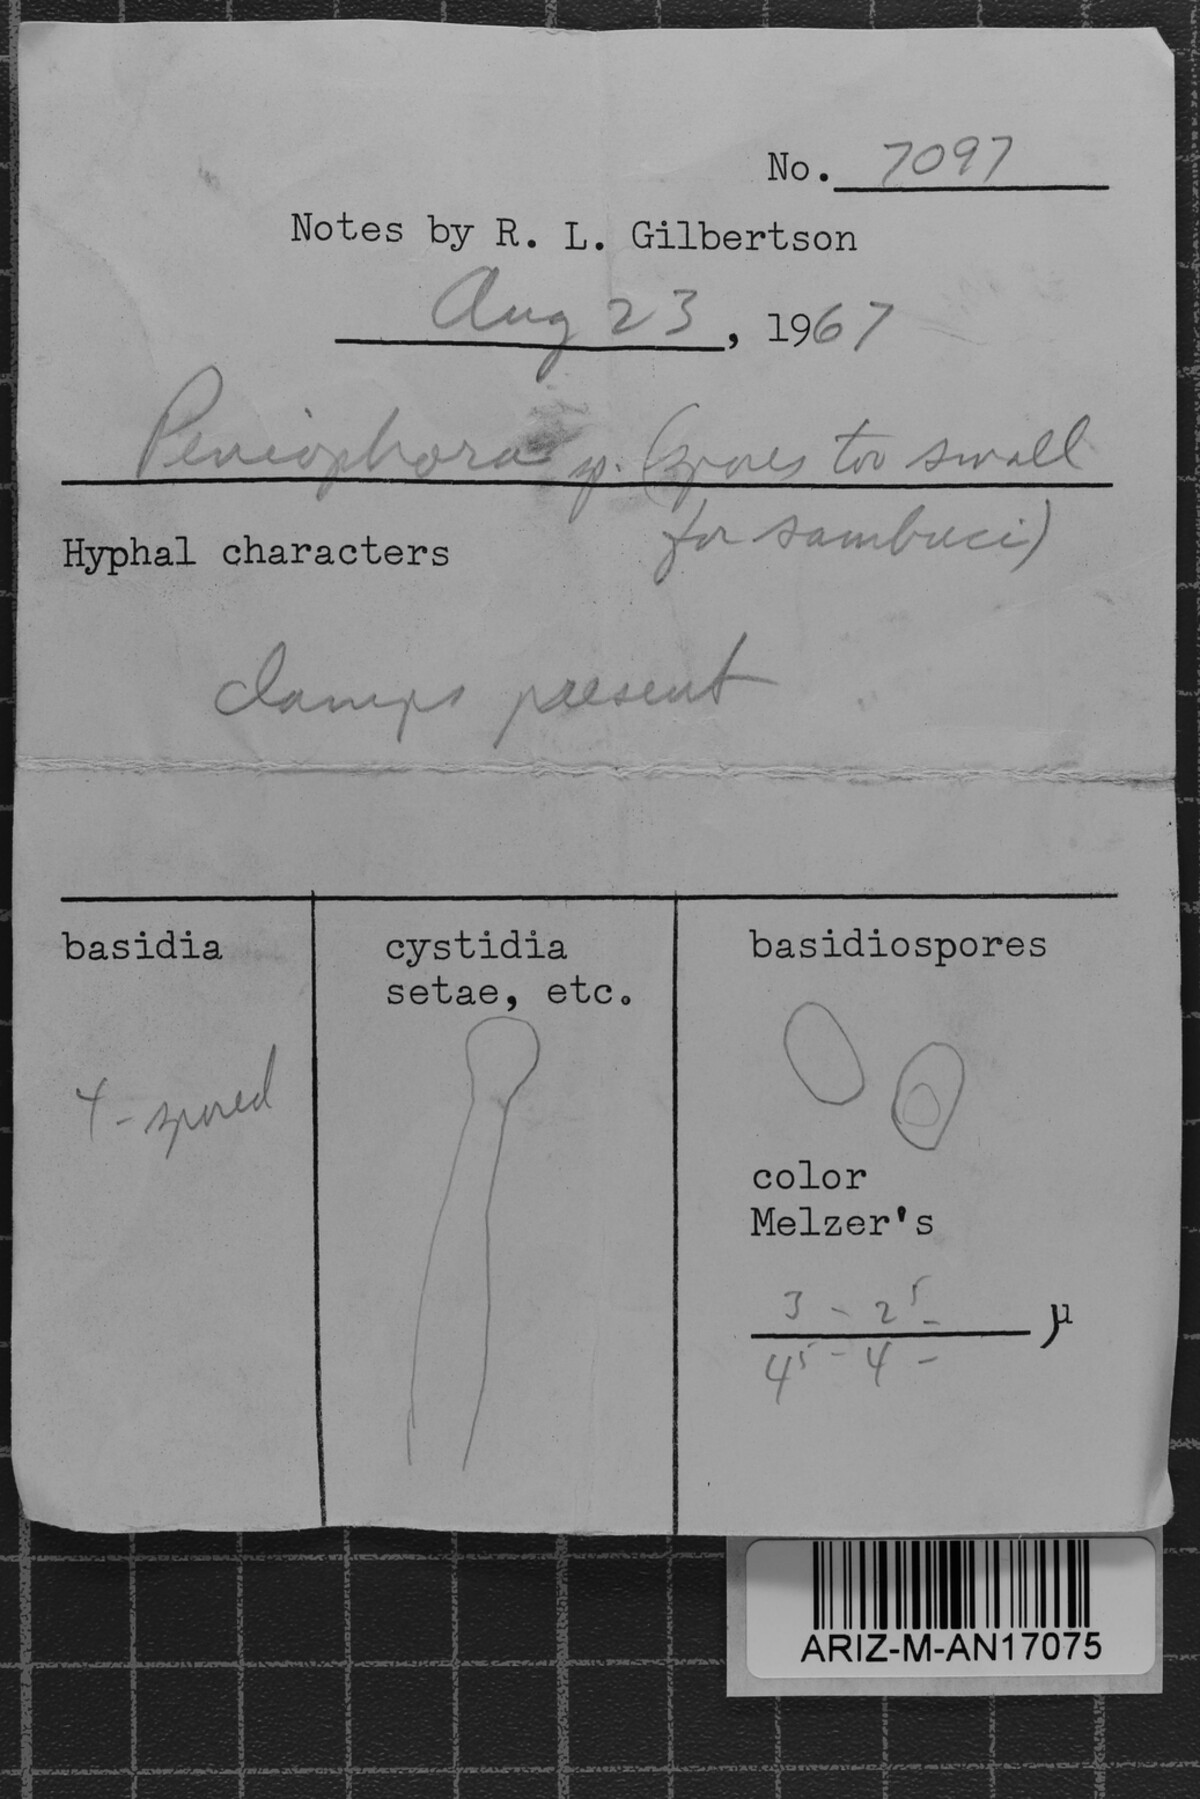 No. 7097
Notes by R. L. Gilbertson
Aug 23, 1967
Peniophora sp. (spores too small
for sambuci)
Hyphal characters
clamps present
basidia
4-spored
cystidia
setae, etc.
basidiospores
color
Melzer's
3 - 2⁵ - µ
4⁵ - 4 -
ARIZ-M-AN17075